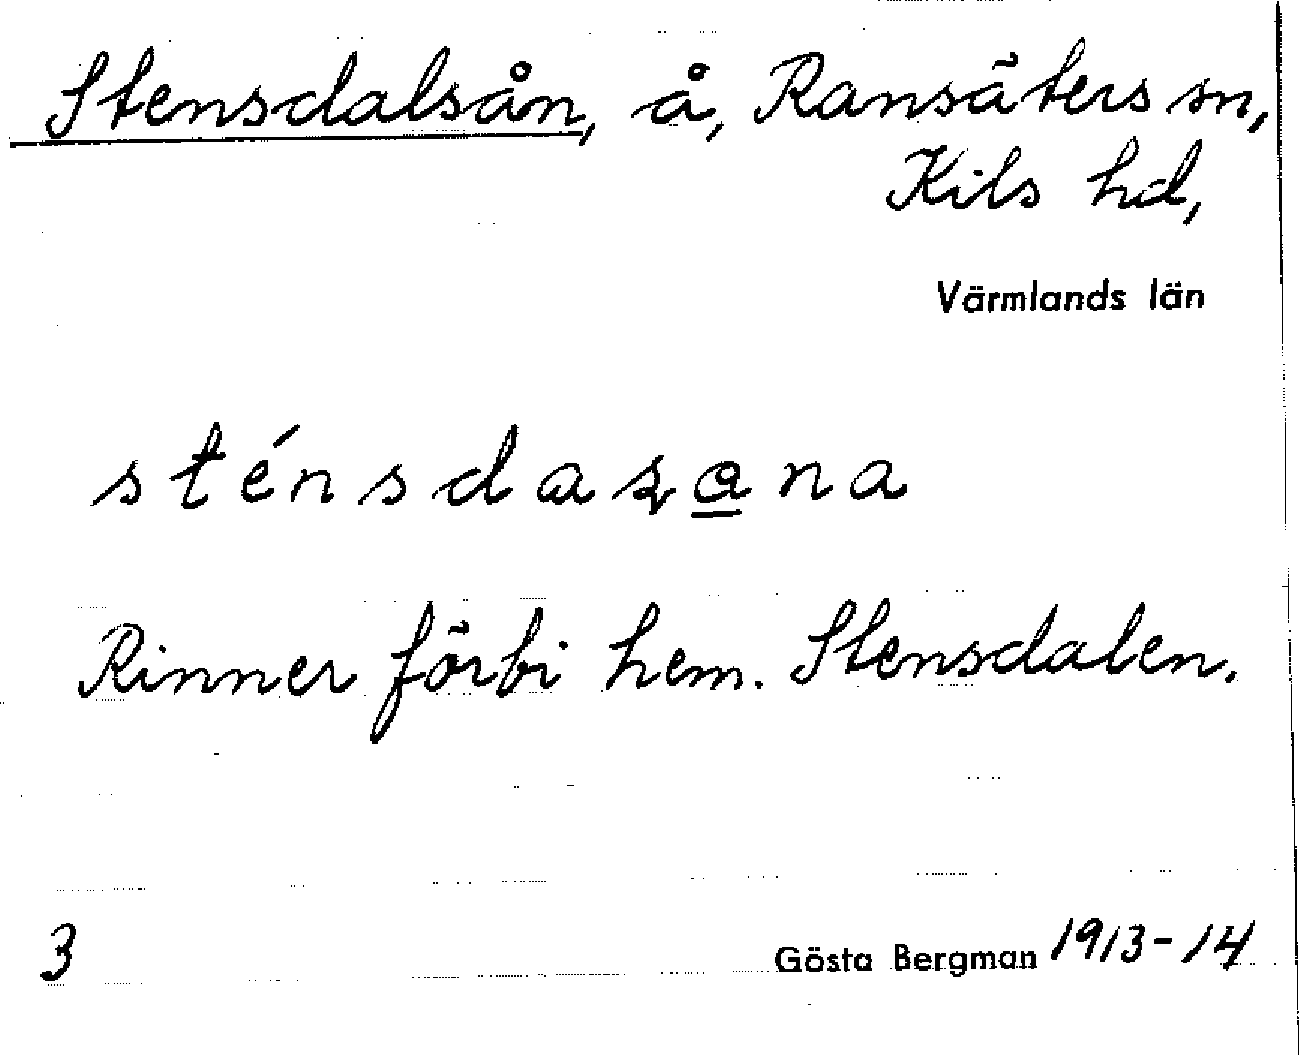 Stensdalsån, å, Ransäters sn,
Kils hd,
Värmlands län
sténsdaʂa̲na
Rinner förbi hem. Stensdalen.
3 Gösta Bergman 1913-14